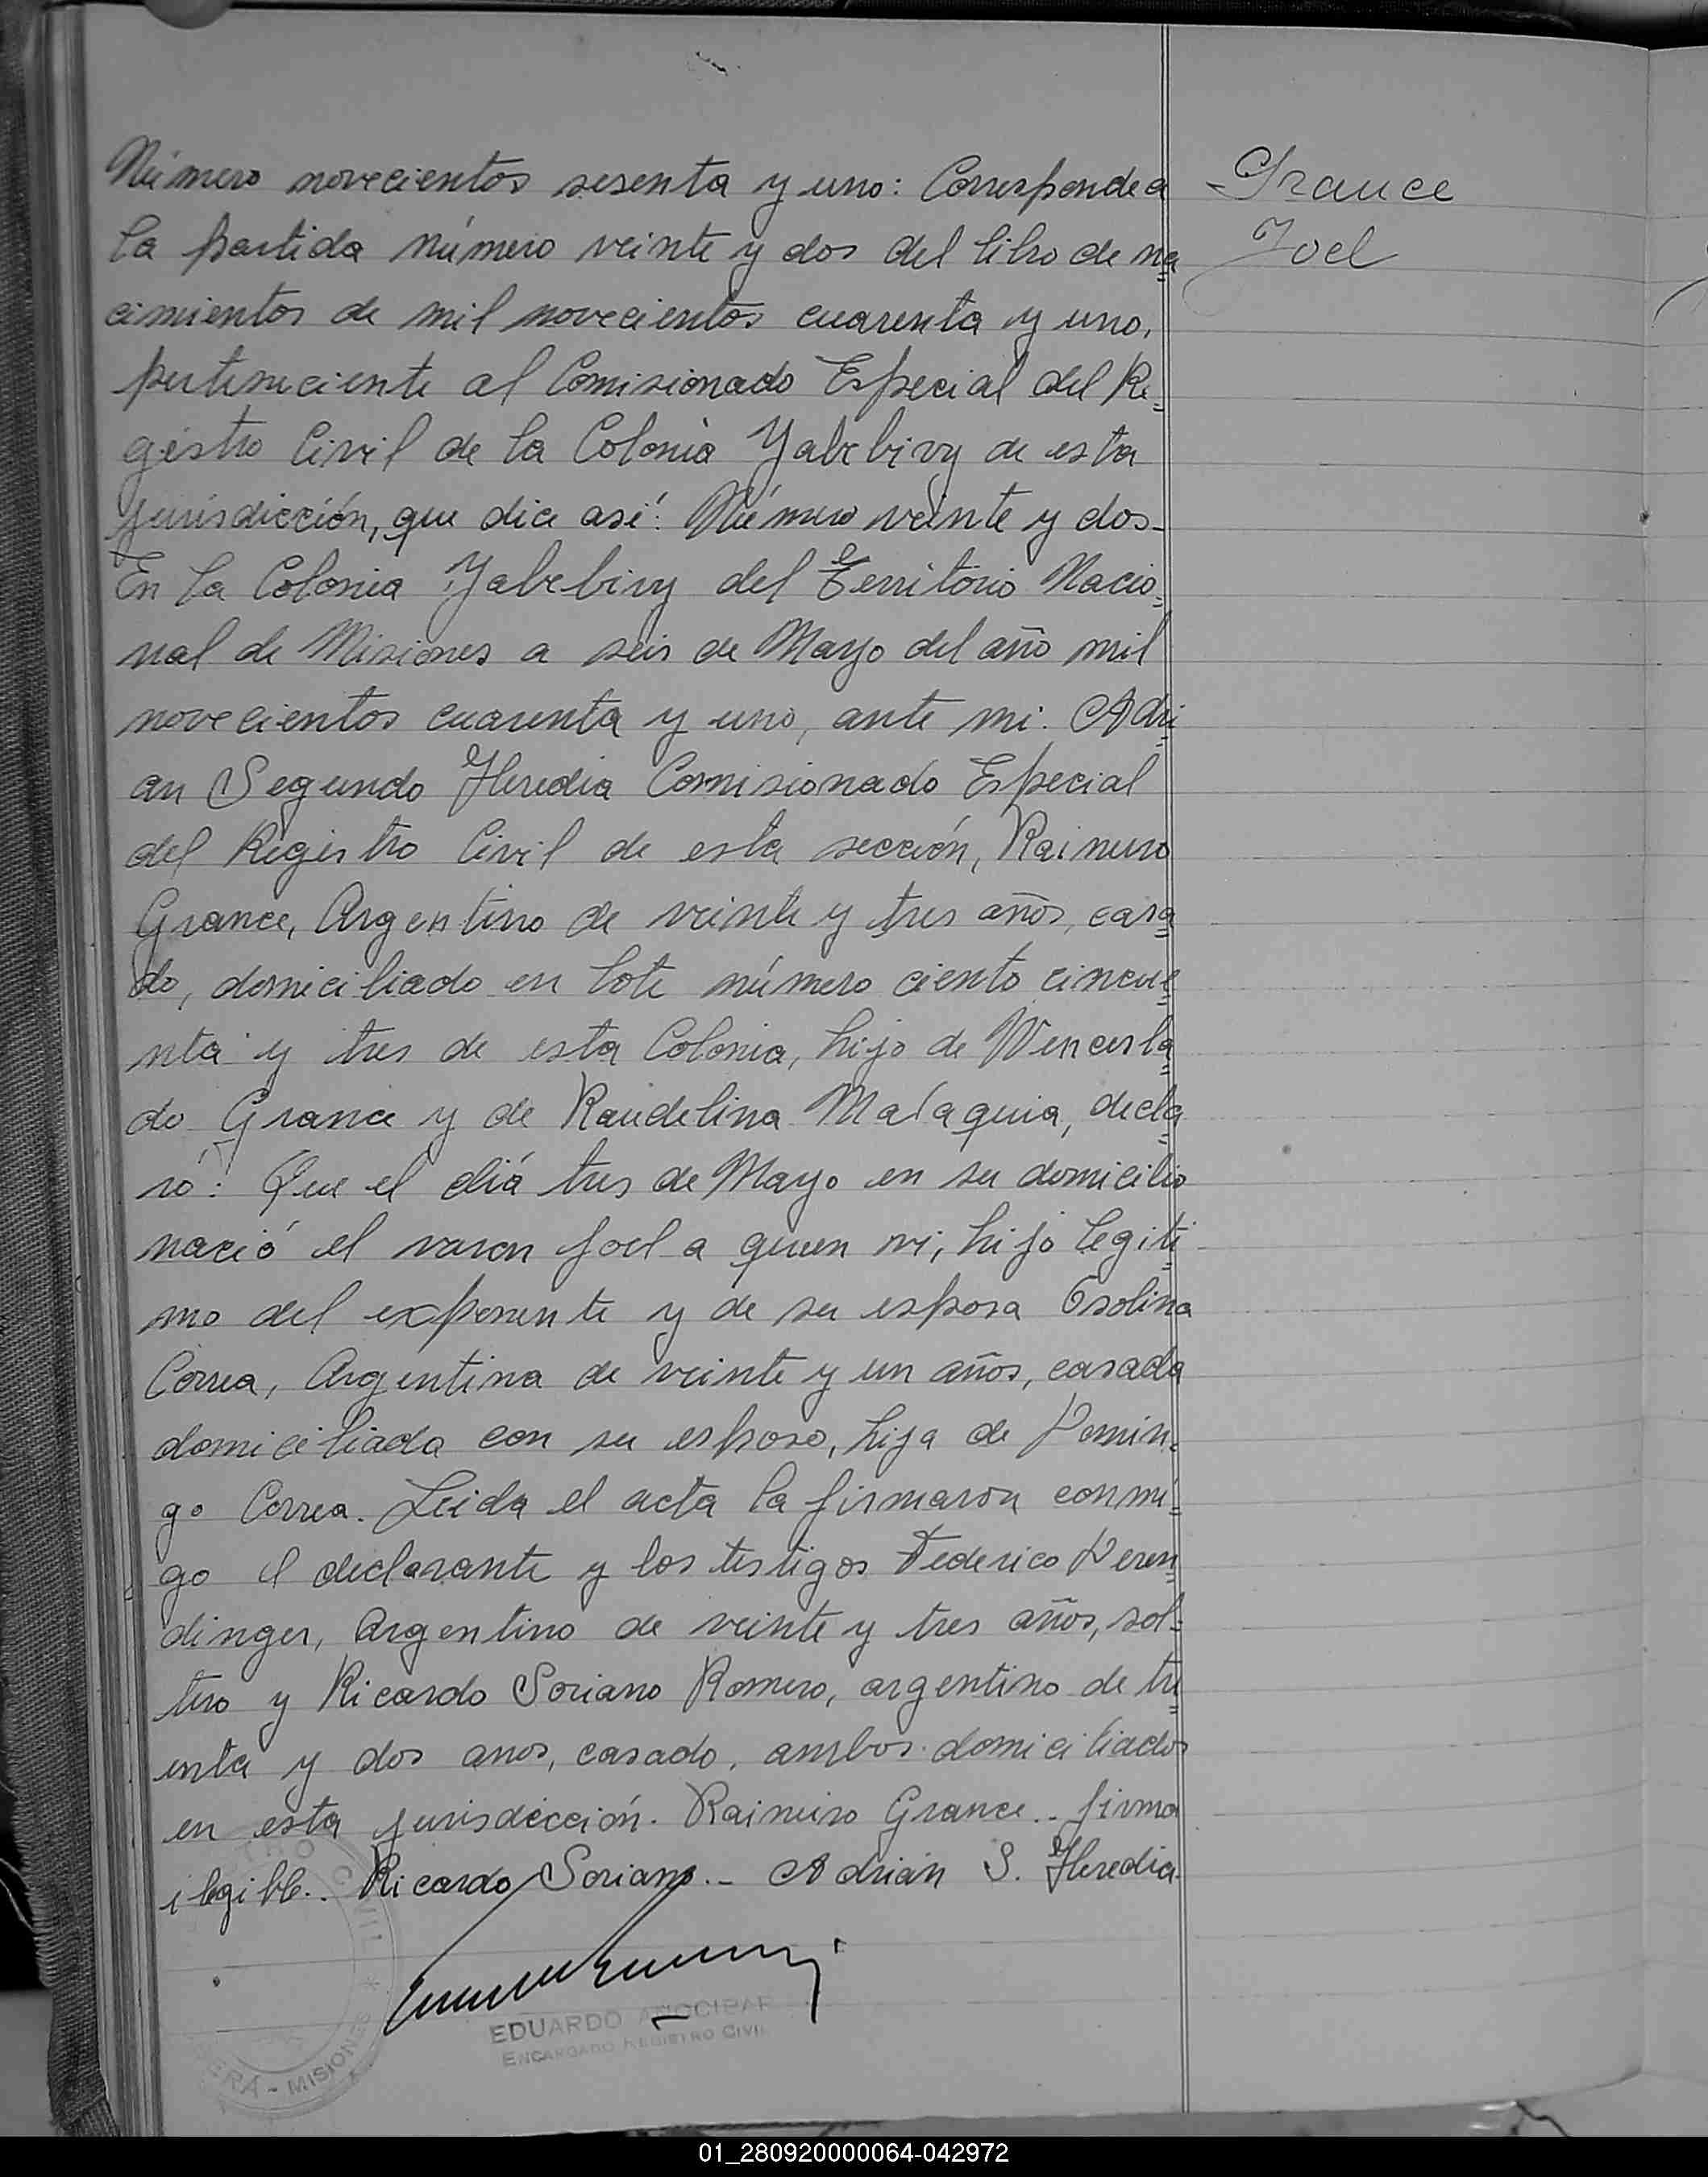 Número novecientos sesenta y uno: Corresponde a
la partida número veinte y dos del libro de na=
cimientos de mil novecientos cuarenta y uno,
perteneciente al Comisionado Especial del Re=
gistro Civil de la Colonia Yabebiry de esta
jurisdicción, que dice así: Número veinte y dos-
En la Colonia Yabebiry del Territorio Nacio=
nal de Misiones a seis de Mayo del año mil
novecientos cuarenta y uno, ante mi: Adri=
an Segundo Heredia Comisionado Especial
del Registro Civil de esta sección, Raimuro
Grance, Argentino de veinte y tres años, casa=
do, domiciliado en lote número ciento cincue=
nta y tres de esta Colonia, hijo de Wencesla=
do Grance y de Raudelina Malaquia, decla=
ró: Que el diá tres de Mayo en su domicilio
nació el varon Joel a quien vi, hijo legiti=
mo del exponente y de su esposa Osolina
Correa, Argentina de veinte y un años, casada
domiciliada con su esposo, hija de Domin=
go Correa. Leida el acta la firmaron conmi=
go el declarante y los testigos Federico Deren=
dinger, Argentino de veinte y tres años, sol=
tero y Ricardo Soriano Romero, argentino de tre=
inta y dos anos, casado, ambos domiciliados
en esta jurisdicción. Raimiro Grance.- firma
ilegible.- Ricardo Soriano.- Adrián S. Heredia.
Grance
Joel
EDUARDO ANOCIBAR
ENCARGADO REGISTRO CIVIL
CIVIL * MISIONES
- MISIONES
01_280920000064-042972